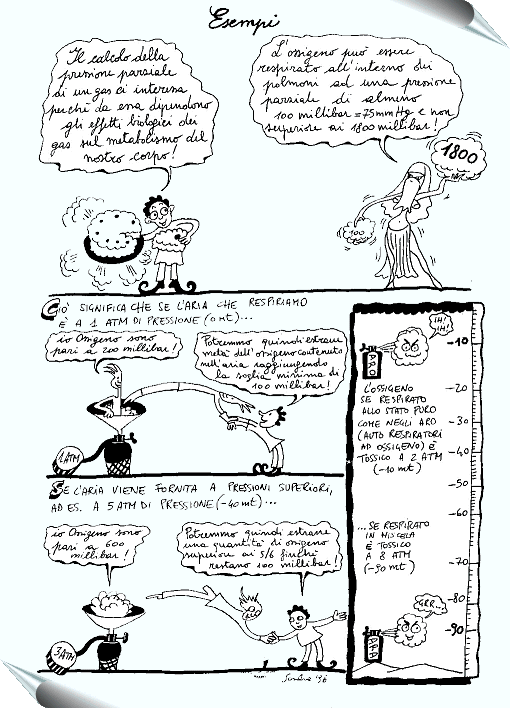 Esempi
Il calcolo della
pressione parziale
di un gas ci interessa
perchè da essa dipendono
gli effetti biologici dei
gas sul metabolismo del
nostro corpo!
L'ossigeno può essere
respirato all'interno dei
polmoni ad una pressione
parziale di almeno
100 millibar = 75 mmHg e non
superiore ai 1800 millibar!
1800
100
CIÒ SIGNIFICA CHE SE L'ARIA CHE RESPIRIAMO
È A 1 ATM DI PRESSIONE (0 mt)...
io Ossigeno sono
pari a 200 millibar!
Potremmo quindi estrarre
metà dell'ossigeno contenuto
nell'aria raggiungendo
la soglia minima di
100 millibar!
1 ATM
SE L'ARIA VIENE FORNITA A PRESSIONI SUPERIORI,
AD ES. A 5 ATM DI PRESSIONE (-40 mt)...
io Ossigeno sono
pari a 600
millibar!
Potremmo quindi estrarre
una quantità di ossigeno
superiore ai 5/6 finchè
restano 100 millibar!
3 ATM
IH!
IH!
ARO
L'OSSIGENO
SE RESPIRATO
ALLO STATO PURO
COME NEGLI ARO
(AUTO RESPIRATORI
AD OSSIGENO) È
TOSSICO A 2 ATM
(-10 mt)
...SE RESPIRATO
IN MISCELA
È TOSSICO
A 8 ATM
(-90 mt)
GRR..
ARA
-10
-20
-30
-40
-50
-60
-70
-80
-90